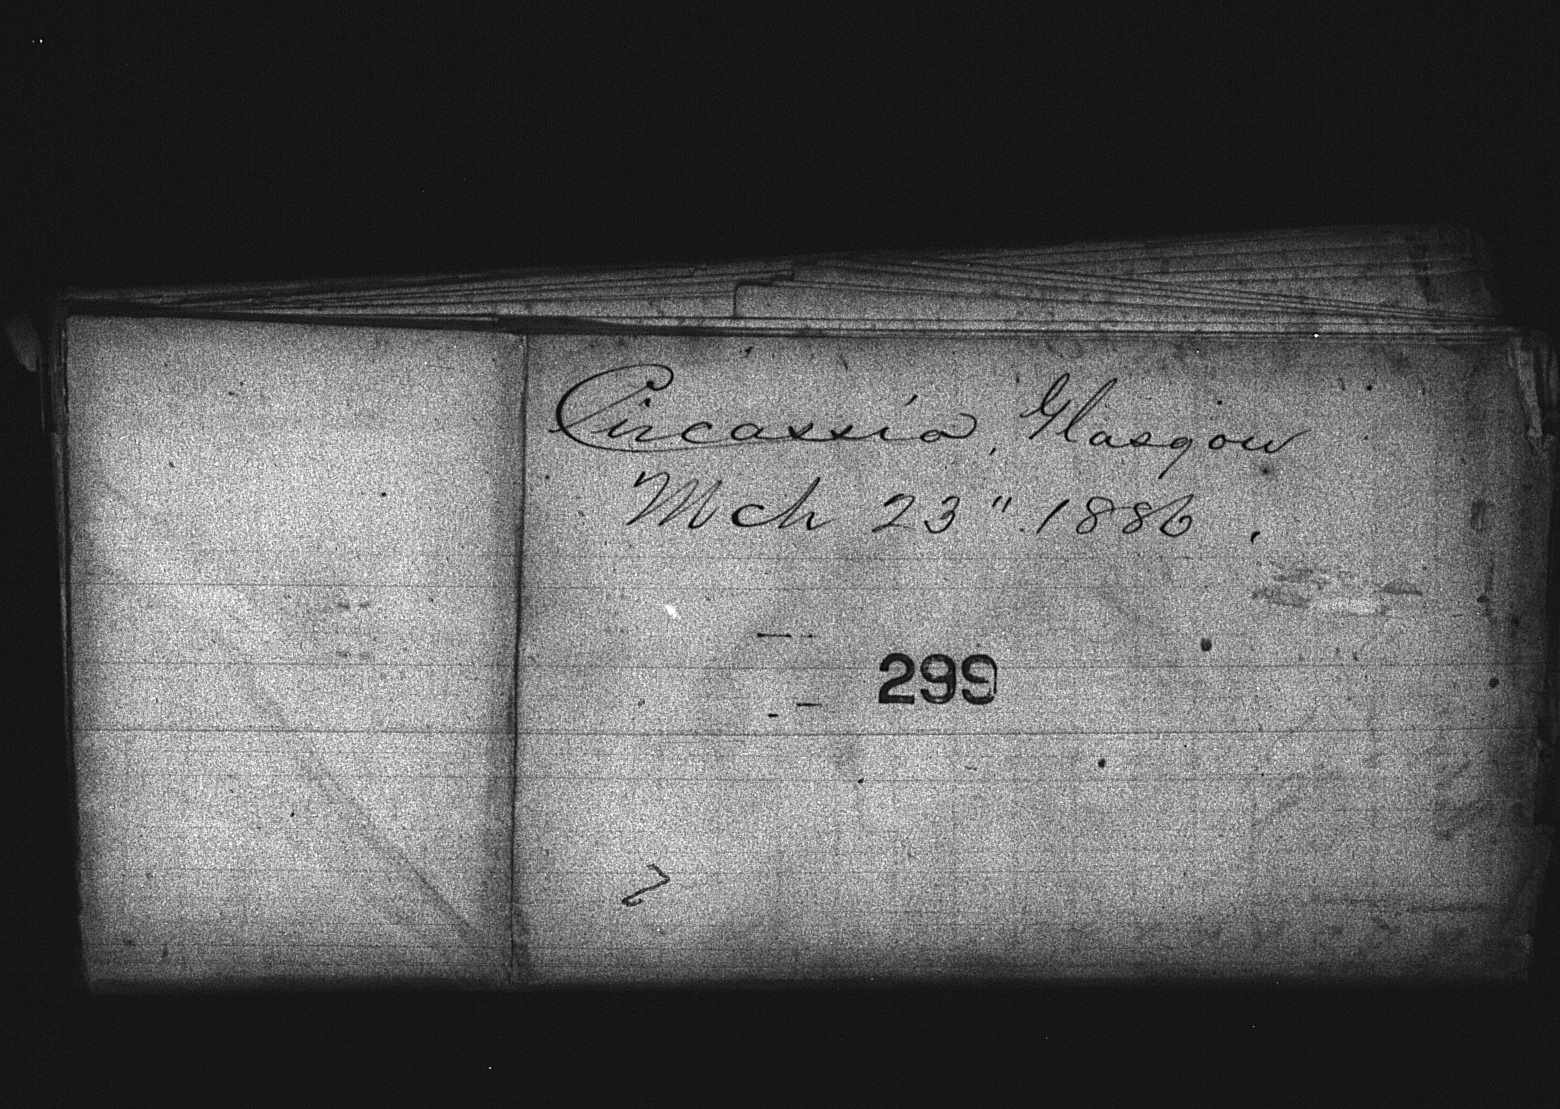 Circassia, Glasgow
Mch 23" 1886.
299
2